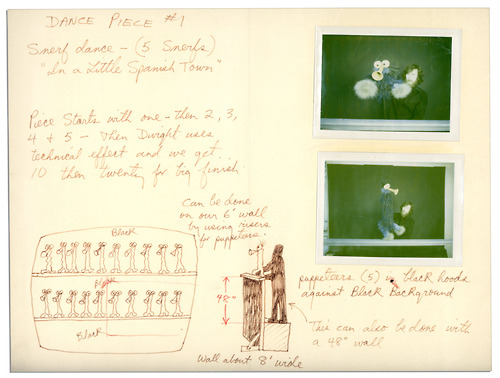 DANCE PIECE #1
Snerf dance - (5 Snerfs)
"In a Little Spanish Town"
Piece Starts with one - then 2, 3,
4 + 5 - then Dwight uses
technical effect and we get..
10 then twenty for big finish.
can be done
on our 6' wall
by using risers
for puppeteers.
Black
Black
Black
48"
Wall about 8' wide
puppeteers (5) in black hoods
against Black Background
This can also be done with
a 48" wall